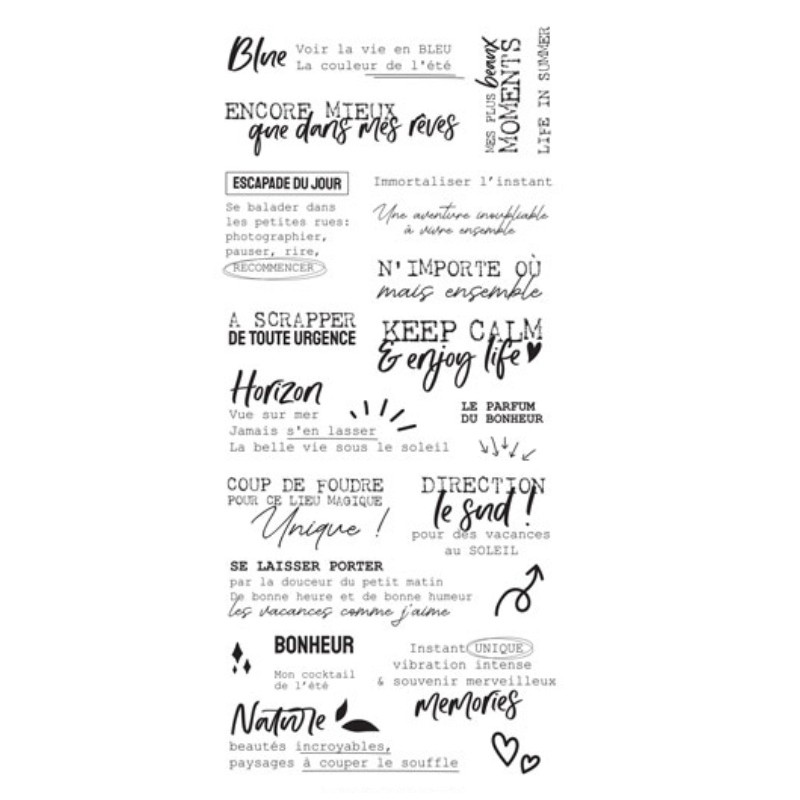 Blue
Voir la vie en BLEU
La couleur de l'été
MES PLUS beaux
MOMENTS
LIFE IN SUMMER
ENCORE MIEUX
que dans mes rêves
ESCAPADE DU JOUR
Se balader dans
les petites rues:
photographier,
pauser, rire,
RECOMMENCER
Immortaliser l'instant
Une aventure inoubliable
à vivre ensemble
N'IMPORTE OÙ
mais ensemble
A SCRAPPER
DE TOUTE URGENCE
KEEP CALM
& enjoy life
Horizon
Vue sur mer
Jamais s'en lasser
La belle vie sous le soleil
LE PARFUM
DU BONHEUR
COUP DE FOUDRE
POUR CE LIEU MAGIQUE
Unique !
DIRECTION
le sud !
pour des vacances
au SOLEIL
SE LAISSER PORTER
par la douceur du petit matin
De bonne heure et de bonne humeur
les vacances comme j'aime
BONHEUR
Mon cocktail
de l'été
Instant UNIQUE
vibration intense
& souvenir merveilleux
memories
Nature
beautés incroyables,
paysages à couper le souffle